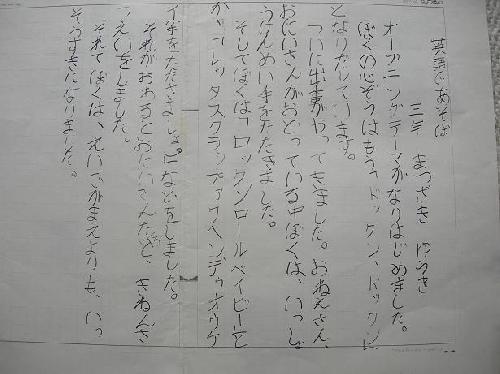 英語であそぼ
三年 まつざき ゆうき
オープニングテーマがなりはじめました。
ぼくの心ぞうはもう、ドックン、ドックンと
となりだしています。
ついに出番がやってきました。おねえさん、
おにいさんがおどっている中ぼくは、いっしょ
うけんめい手をたたきました。
そしてぼくは「ロックンロールベイビーと
レッタスクラップアウハンヅ
手をたたきましょ。」
それがおわるとおにいさんたちと、きねんさ
つえいをしました。
それでぼくは、えいごがまえよりも、いっ
そうすきになりました。